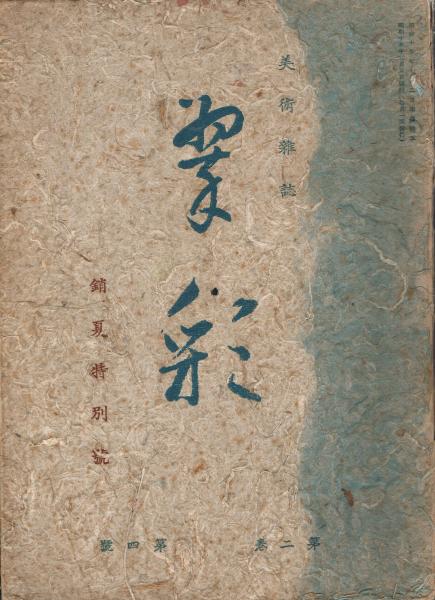 美術雜誌
翠彩
銷夏特別號
第二卷 第四號